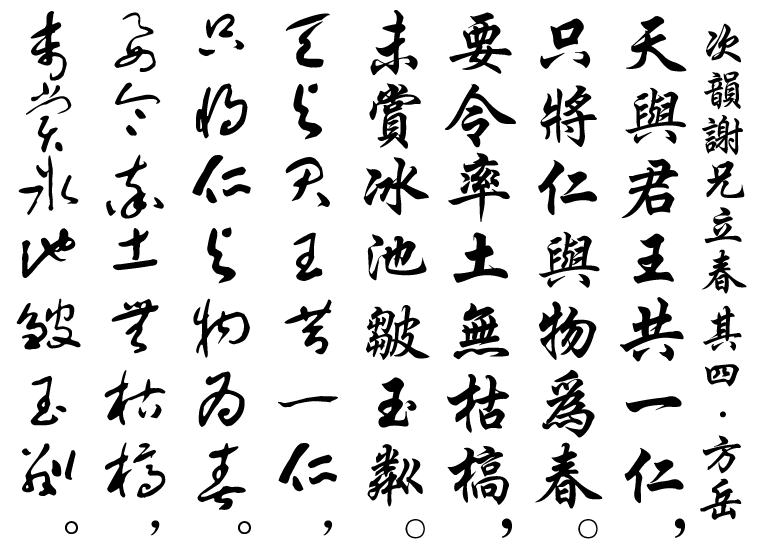 次韻謝兄立春其四·方岳
天與君王共一仁，
只將仁與物爲春。
要令率土無枯槁，
未賞冰池皺玉粼。
天與君王共一仁，
只將仁與物爲春。
要令率土無枯槁，
未賞冰池皺玉粼。